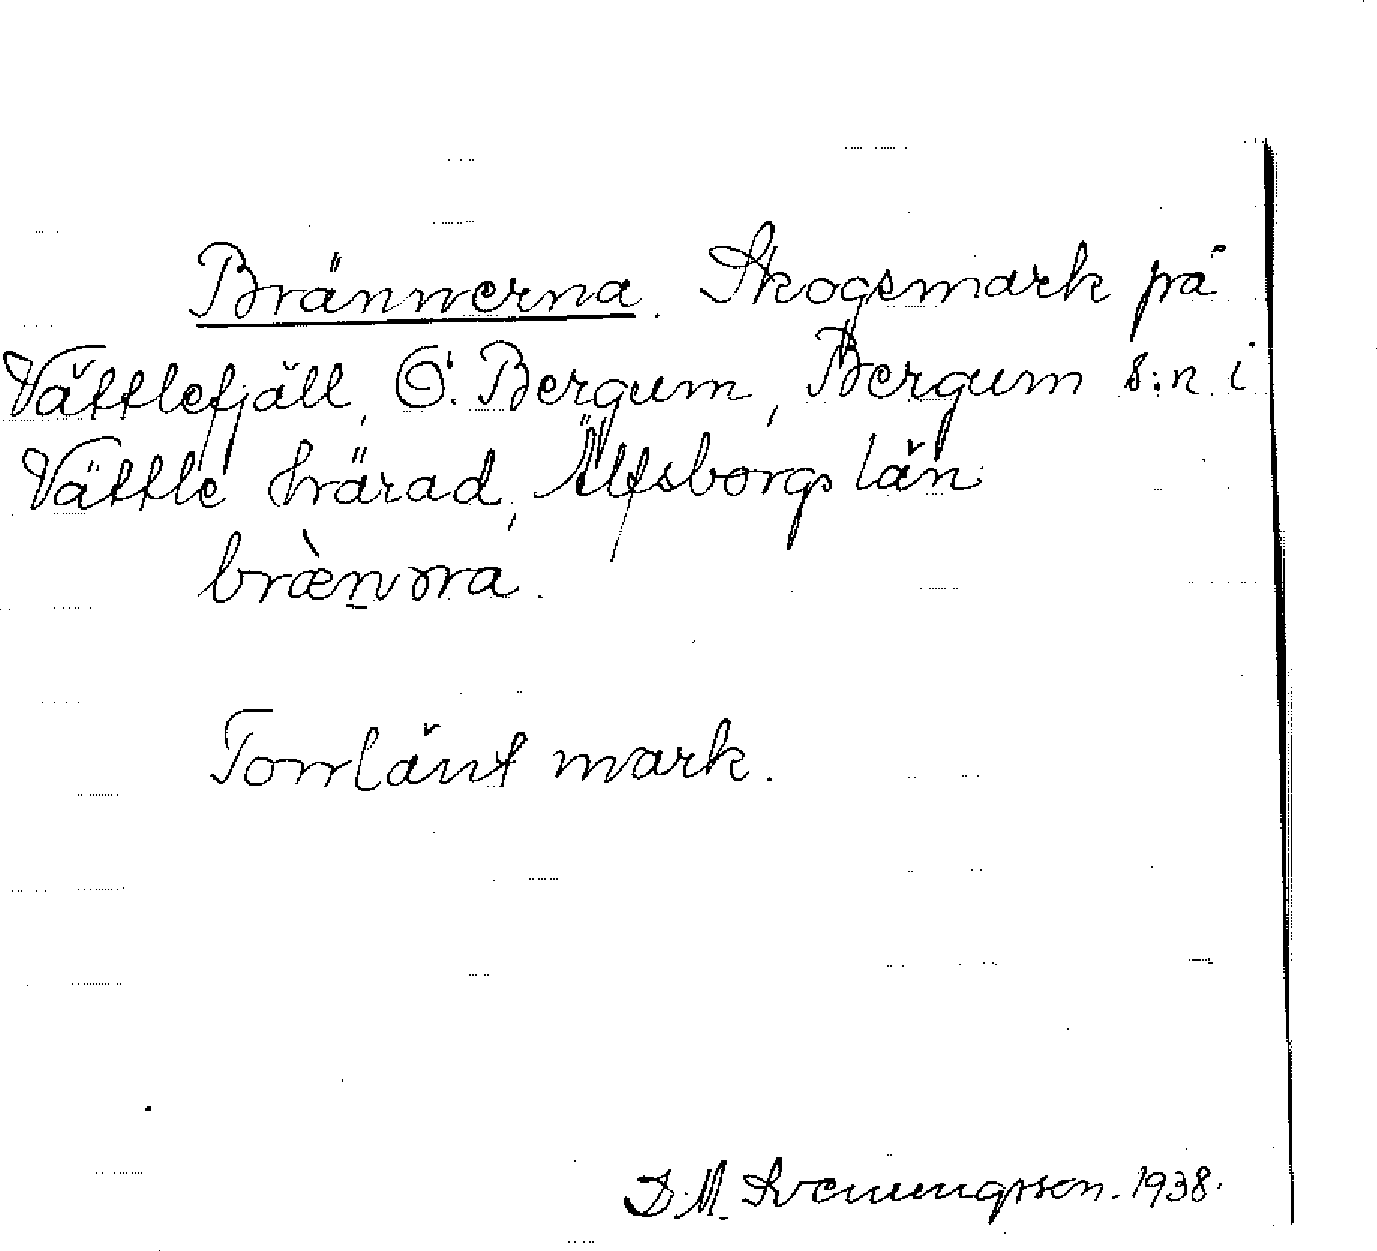 Brännerna. Skogsmark på
Vättlefjäll, Ö. Bergum, Bergum s:n i
Vättle härad, Älfsborgs län
bræ̀n̠ɷra.
Torrlänt mark.
D. M. Svenungsson. 1938.